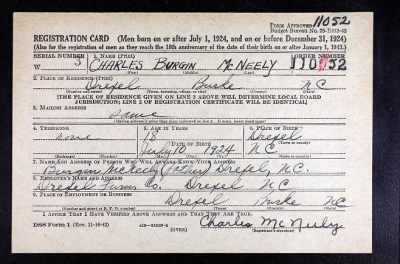 Form Approved
Budget Bureau No.
11052
REGISTRATION CARD (Men born on or after July 1, 1924, and on or before December 31, 1924)
(Also for the registration of men as they reach the 18th anniversary of the date of their birth on or after January 1, 1943.)
SERIAL NUMBER 1. NAME (Print) ORDER NUMBER
CHARLES BURGIN McNEELY 11052
2. PLACE OF RESIDENCE (Print)
Drexel Burke N C
(Number and street) (Town, township, village, or city) (County) (State)
[THE PLACE OF RESIDENCE GIVEN ON LINE 2 ABOVE WILL DETERMINE LOCAL BOARD
JURISDICTION; LINE 2 OF REGISTRATION CERTIFICATE WILL BE IDENTICAL]
3. MAILING ADDRESS
Same
(Mailing address if other than place indicated on line 2. If same, insert word same)
4. TELEPHONE 5. AGE IN YEARS 6. PLACE OF BIRTH
none 18 Drexel
DATE OF BIRTH
July 10 1924 N C
(Exchange) (Number) (Mo.) (Day) (Yr.) (State or country)
7. NAME AND ADDRESS OF PERSON WHO WILL ALWAYS KNOW YOUR ADDRESS
Burgin McNeely (Father) Drexel, N.C.
8. EMPLOYER'S NAME AND ADDRESS
Drexel Furn. Co. Drexel N C
9. PLACE OF EMPLOYMENT OR BUSINESS
Drexel Burke N C
(Number and street or R. F. D. number) (Town) (County) (State)
I AFFIRM THAT I HAVE VERIFIED ABOVE ANSWERS AND THAT THEY ARE TRUE.
DSS Form 1 (Rev. 11-16-42) (OVER) Charles McNeely
(Registrant's signature)